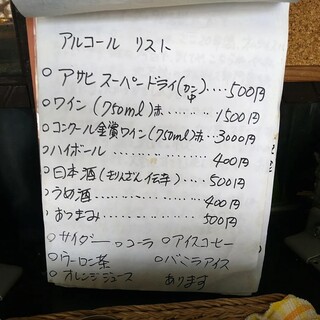 アルコール リスト
○ アサヒ スーパードライ(カン中)‥‥500円
○ ワイン(750ml)赤‥‥‥‥1500円
○ コンクール金賞ワイン(750ml)赤‥3000円
○ ハイボール‥‥‥‥‥400円
○ 日本酒( )‥‥500円
○ うめ酒‥‥‥‥‥‥400円
○ おつまみ‥‥‥‥‥500円
○ サイダー ○ コーラ ○ アイスコーヒー
○ ウーロン茶 ○ バニラアイス
○ オレンジジュース あります